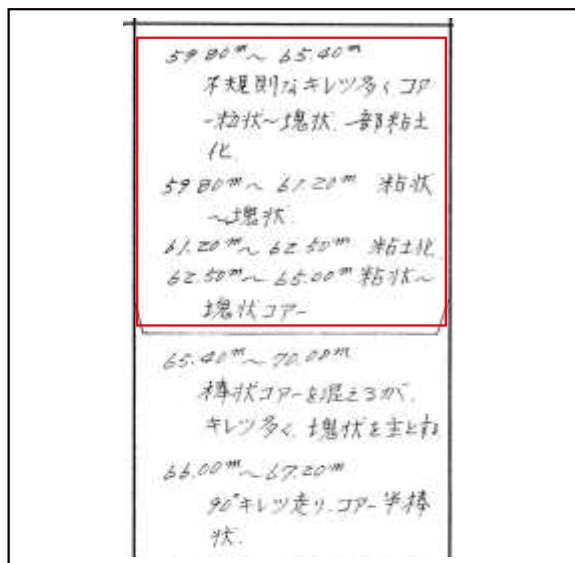 59.80m～65.40m
不規則なキレツ多くコア
ー粒状～塊状.一部粘土
化.
59.80m～61.20m 粘状
～塊状.
61.20m～62.50m 粘土化.
62.50m～65.00m 粘状～
塊状コアー
65.40m～70.00m
棒状コアーを混えるが、
キレツ多く、塊状を主とする
66.00m～67.20m
90°キレツ走り.コアー半棒
状.